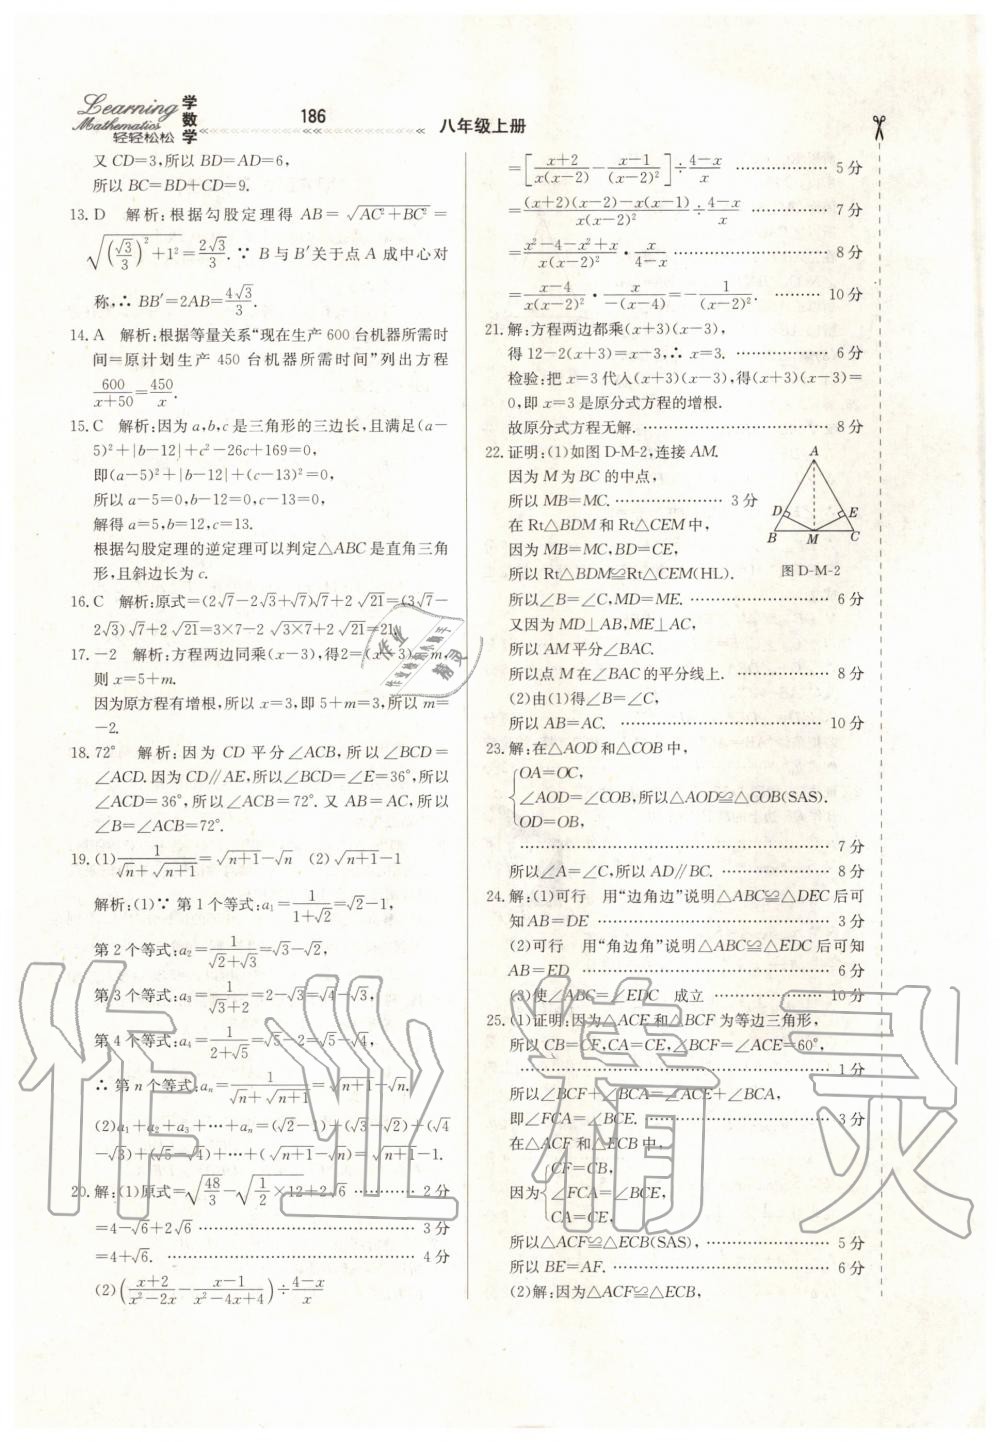 Learning
Mathematics
轻轻松松
学数学
186
八年级上册
又 CD=3,所以 BD=AD=6,
所以 BC=BD+CD=9.
13. D 解析:根据勾股定理得 AB=√(AC²+BC²)=
√((√3/3)²+1²)=2√3/3.∵ B 与 B′关于点 A 成中心对
称,∴ BB′=2AB=4√3/3.
14. A 解析:根据等量关系“现在生产 600 台机器所需时
间=原计划生产 450 台机器所需时间”列出方程
600/(x+50)=450/x.
15. C 解析:因为 a,b,c 是三角形的三边长,且满足(a-
5)²+|b-12|+c²-26c+169=0,
即(a-5)²+|b-12|+(c-13)²=0,
所以 a-5=0,b-12=0,c-13=0,
解得 a=5,b=12,c=13.
根据勾股定理的逆定理可以判定△ABC 是直角三角
形,且斜边长为 c.
16. C 解析:原式=(2√7-2√3+√7)√7+2√21=(3√7-
2√3)√7+2√21=3×7-2√(3×7)+2√21=21.
17. -2 解析:方程两边同乘(x-3),得2=(x-3)-m,
则 x=5+m.
因为原方程有增根,所以 x=3,即 5+m=3,所以 m=
-2.
18. 72° 解析:因为 CD 平分∠ACB,所以∠BCD=
∠ACD.因为 CD∥AE,所以∠BCD=∠E=36°,所以
∠ACD=36°,所以∠ACB=72°.又 AB=AC,所以
∠B=∠ACB=72°.
19. (1)1/(√n+√(n+1))=√(n+1)-√n (2)√(n+1)-1
解析:(1)∵ 第 1 个等式:a₁=1/(1+√2)=√2-1,
第 2 个等式:a₂=1/(√2+√3)=√3-√2,
第 3 个等式:a₃=1/(√3+2)=2-√3=√4-√3,
第 4 个等式:a₄=1/(2+√5)=√5-2=√5-√4,
∴ 第 n 个等式:aₙ=1/(√n+√(n+1))=√(n+1)-√n.
(2)a₁+a₂+a₃+…+aₙ=(√2-1)+(√3-√2)+(√4
-√3)+(√5-√4)+…+(√(n+1)-√n)=√(n+1)-1.
20. 解:(1)原式=√(48/3)-√(1/2×12)+2√6 ………… 2分
=4-√6+2√6 ………………………………… 3分
=4+√6. ………………………………………… 4分
(2)((x+2)/(x²-2x)-(x-1)/(x²-4x+4))÷(4-x)/x
=[(x+2)/(x(x-2))-(x-1)/(x-2)²]÷(4-x)/x ………………… 5分
=((x+2)(x-2)-x(x-1))/(x(x-2)²)÷(4-x)/x ……………… 7分
=(x²-4-x²+x)/(x(x-2)²)·x/(4-x) ………………………… 8分
=(x-4)/(x(x-2)²)·x/(-(x-4))=-1/(x-2)². ……… 10分
21. 解:方程两边都乘(x+3)(x-3),
得 12-2(x+3)=x-3,∴ x=3. ………………… 6分
检验:把 x=3 代入(x+3)(x-3),得(x+3)(x-3)=
0,即 x=3 是原分式方程的增根.
故原分式方程无解. ………………………………… 8分
22. 证明:(1)如图 D-M-2,连接 AM.
因为 M 为 BC 的中点,
所以 MB=MC. ………………… 3分
在 Rt△BDM 和 Rt△CEM 中,
因为 MB=MC,BD=CE,
所以 Rt△BDM≌Rt△CEM(HL).
A
D
E
B
M
C
图 D-M-2
所以∠B=∠C,MD=ME. ……………………… 6分
又因为 MD⊥AB,ME⊥AC,
所以 AM 平分∠BAC.
所以点 M 在∠BAC 的平分线上. ……………… 8分
(2)由(1)得∠B=∠C,
所以 AB=AC. ………………………………… 10分
23. 解:在△AOD 和△COB 中,
OA=OC,
∠AOD=∠COB,所以△AOD≌△COB(SAS).
OD=OB,
…………………………………………………… 7分
所以∠A=∠C,所以 AD∥BC. ………………… 8分
24. 解:(1)可行 用“边角边”说明△ABC≌△DEC 后可
知 AB=DE ……………………………………… 3分
(2)可行 用“角边角”说明△ABC≌△EDC 后可知
AB=ED ………………………………………… 6分
(3)使∠ABC=∠EDC 成立 ………………… 10分
25. (1)证明:因为△ACE 和△BCF 为等边三角形,
所以 CB=CF,CA=CE,∠BCF=∠ACE=60°,
…………………………………………………… 1分
所以∠BCF+∠BCA=∠ACE+∠BCA,
即∠FCA=∠BCE. ……………………………… 3分
在△ACF 和△ECB 中,
CF=CB,
因为 ∠FCA=∠BCE,
CA=CE,
所以△ACF≌△ECB(SAS), …………………… 5分
所以 BE=AF. …………………………………… 6分
(2)解:因为△ACF≌△ECB,
作业精灵